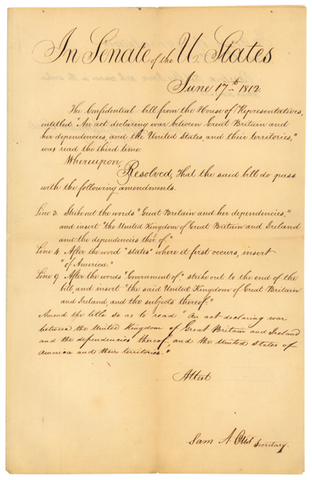 In Senate of the U. States
June 17th 1812.
The Confidential bill from the House of Representatives,
intitled "An act declaring war between Great Britain and
her dependencies, and the United States and their territories,"
was read the third time
Whereupon,
Resolved, That the said bill do pass
with the following amendments.
Line 3. Strike out the words "Great Britain and her dependencies,"
and insert "the United Kingdom of Great Britain and Ireland
and the dependencies thereof."
After the word "States" where it first occurs, insert
"of America."
Line 9. After the words "Government of" strike out to the end of the
bill, and insert "the said United Kingdom of Great Britain
and Ireland, and the subjects thereof."
Amend the title so as to read "An act declaring war
between the United Kingdom of Great Britain and Ireland
and the dependencies thereof, and the United States of
America and their territories."
Attest
Sam A. Otis Secretary.